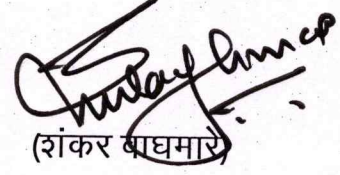 (शंकर वाघमारे)